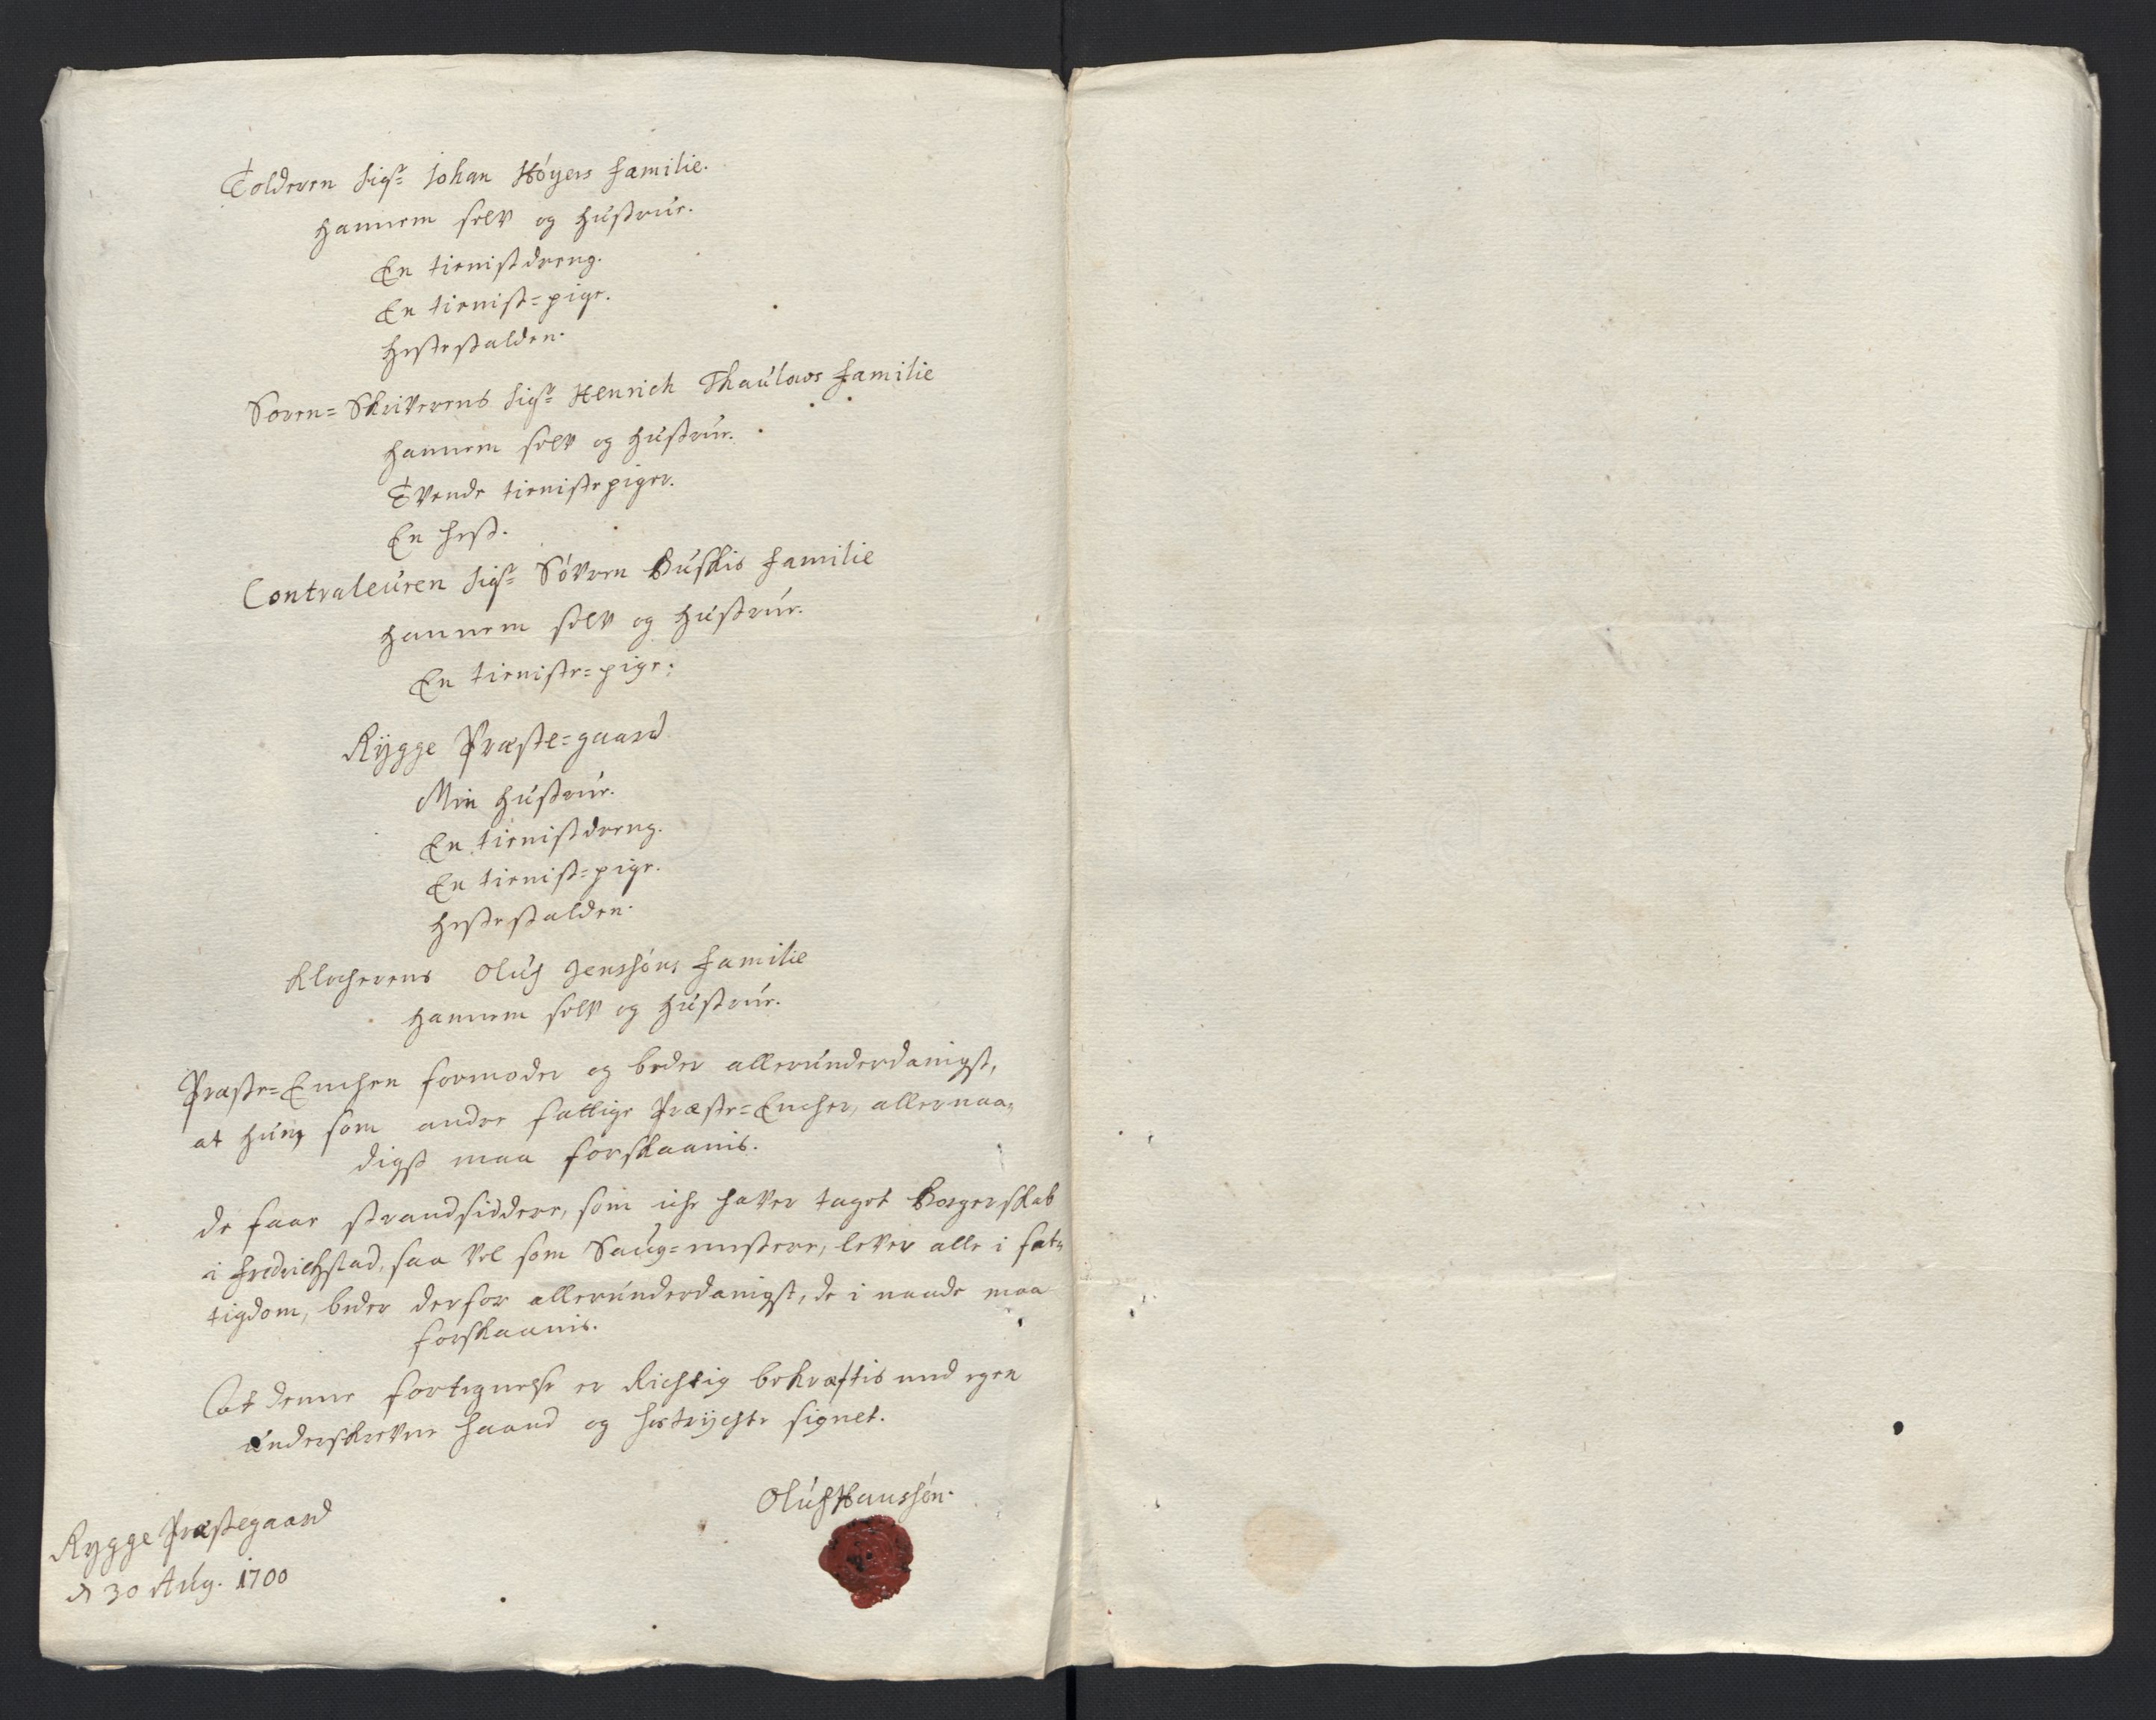 Tolderen Sigr Johan Höyers familie.
hannem selv og hustrue.
En tienistdreng.
En tienist=pige.
hestestalden.
Soren=Skriverens Sigr Henrich Thaulovs familie
hannem selv og hustrue.
Tvende tienistepiger.
En hest.
Contraleuren Sigr Sövren Buskis familie
hannem selv og hustrue.
En tieniste=pige.
Rygge Præste=gaard
Min hustrue.
En tienistdreng.
En tienist=pige.
hestestalden.
Klocherens Oluf Jenssöns familie
hannem selv og hustrue.
Præste=Enchen formoder og beder allerunderdanigst,
at hun, som andre fattige Præste=Encher, allernaa,
digst maa forskaanis.
de faae strandsiddere, som iche haver taget Borgerskab
i Fredrichstad, saa vel som Saug=mestere, lever alle i fat,
tigdom, beder derfor allerunderdanigst, de i naade maa
forskaanis.
At denne fortegnelse er Richtig bekræftis med egen
underskrevne haand og hostrychte signet.
Oluf Hanssön.
Rygge Præstegaard
d 30 Aug. 1700